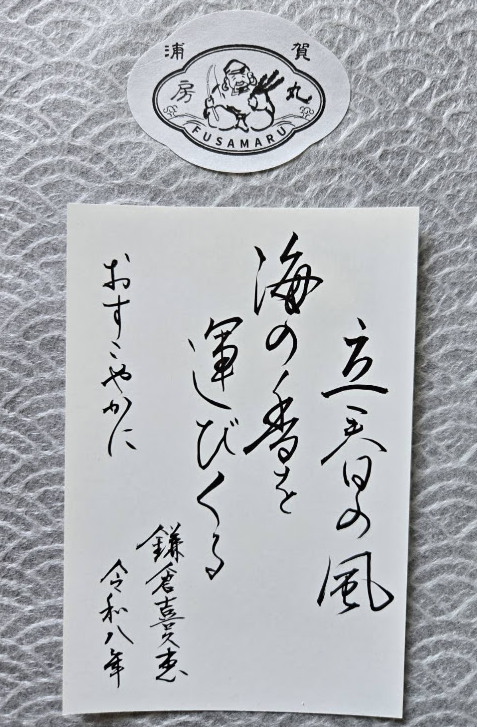 浦賀
房丸
FUSAMARU
立春の風
海の香を
運びくる
おすこやかに
鎌倉喜久恵
令和八年